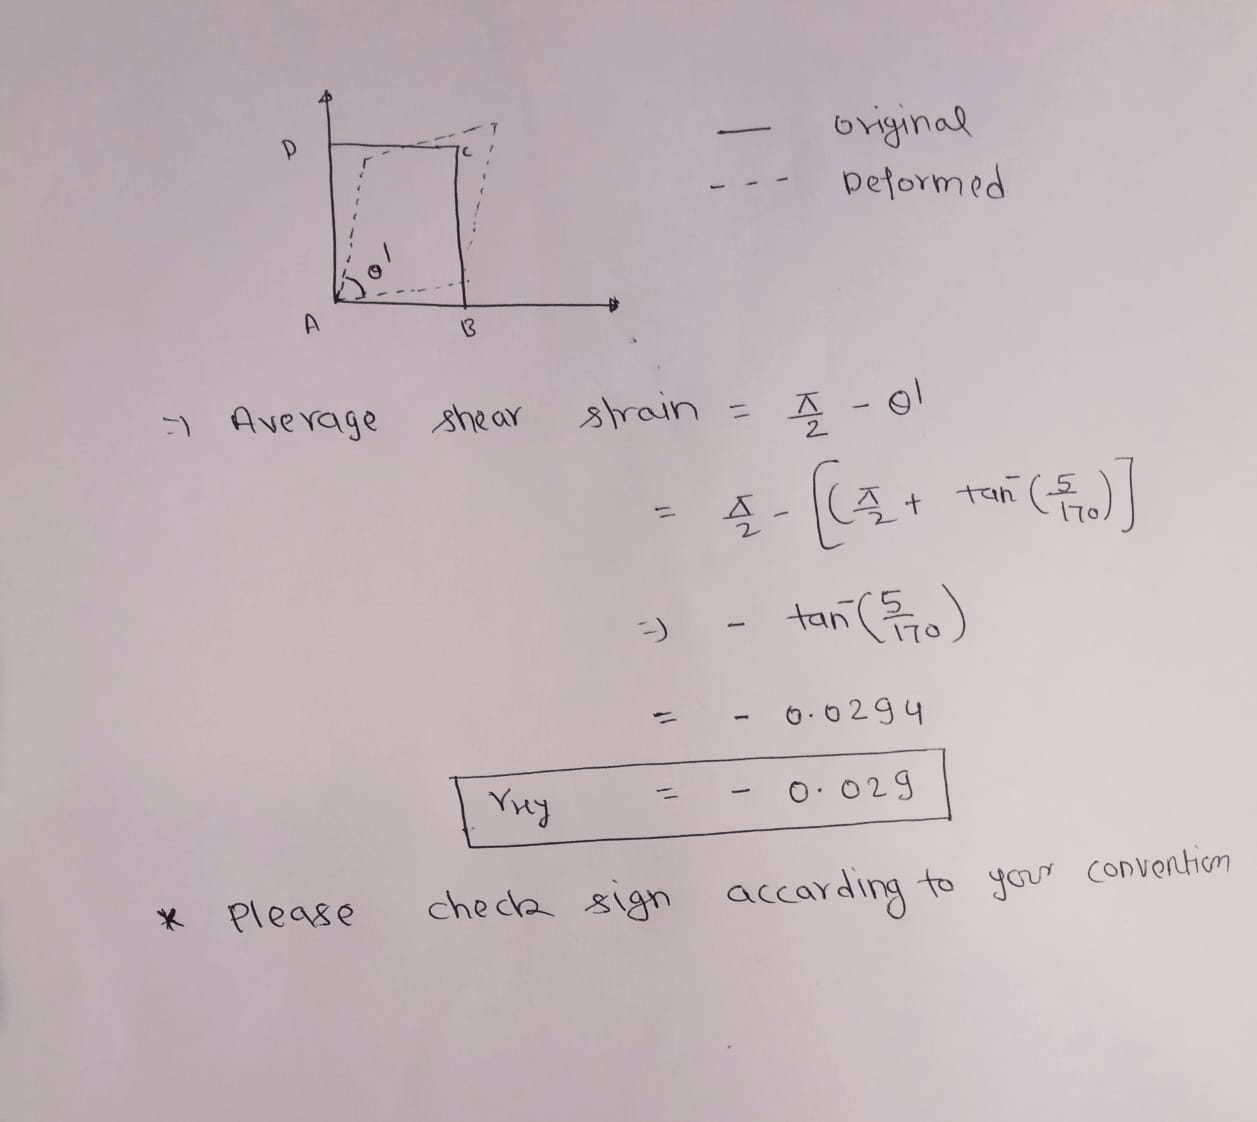 — original
--- Deformed
D
C
θ'
A
B
=> Average shear strain = π/2 - θ'
= π/2 - [(π/2 + tan⁻(5/170)]
=> - tan⁻(5/170)
= - 0.0294
γxy = - 0.029
* Please check sign according to your convention